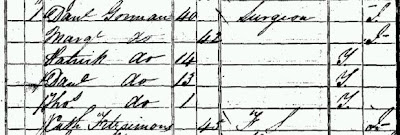 1 Danl Gorman 40 Surgeon I
Margt do 42 I
Patrick do 14 I
Danl do 13 I
Thos do 1 I
Cath Fitzsimons 45 F S I